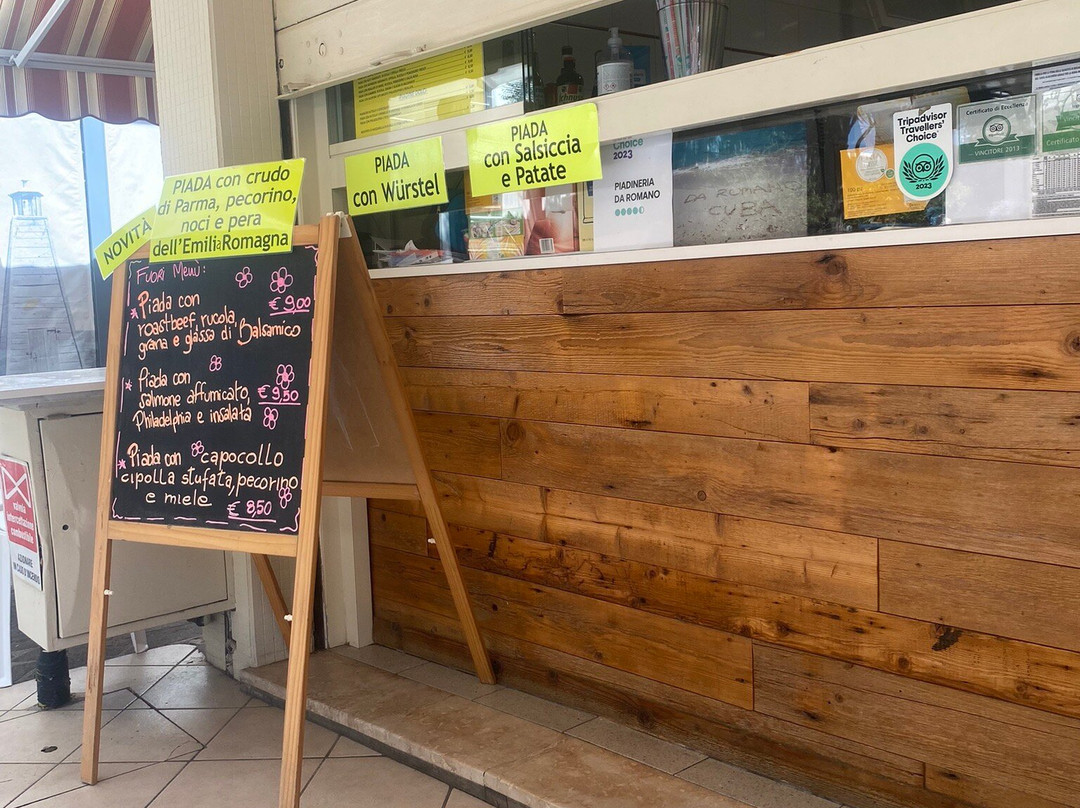 NOVITÀ
PIADA con crudo
di Parma, pecorino,
noci e pera
dell'Emilia Romagna
FUORI MENÙ:
Piada con € 9,00
roastbeef, rucola,
grana e glassa di Balsamico
Piada con
salmone affumicato, € 9,50
Philadelphia e insalata
Piada con capocollo
cipolla stufata, pecorino
e miele € 8,50
PIADA
con Würstel
PIADA
con Salsiccia
e Patate
Choice
2023
PIADINERIA
DA ROMANO
DA ROMANO
CUBA
Tripadvisor
Travellers'
Choice
2023
Certificato di Eccellenza
VINCITORE 2013
valvola
intercettazione
combustibile
AZIONARE
IN CASO D'INCENDIO